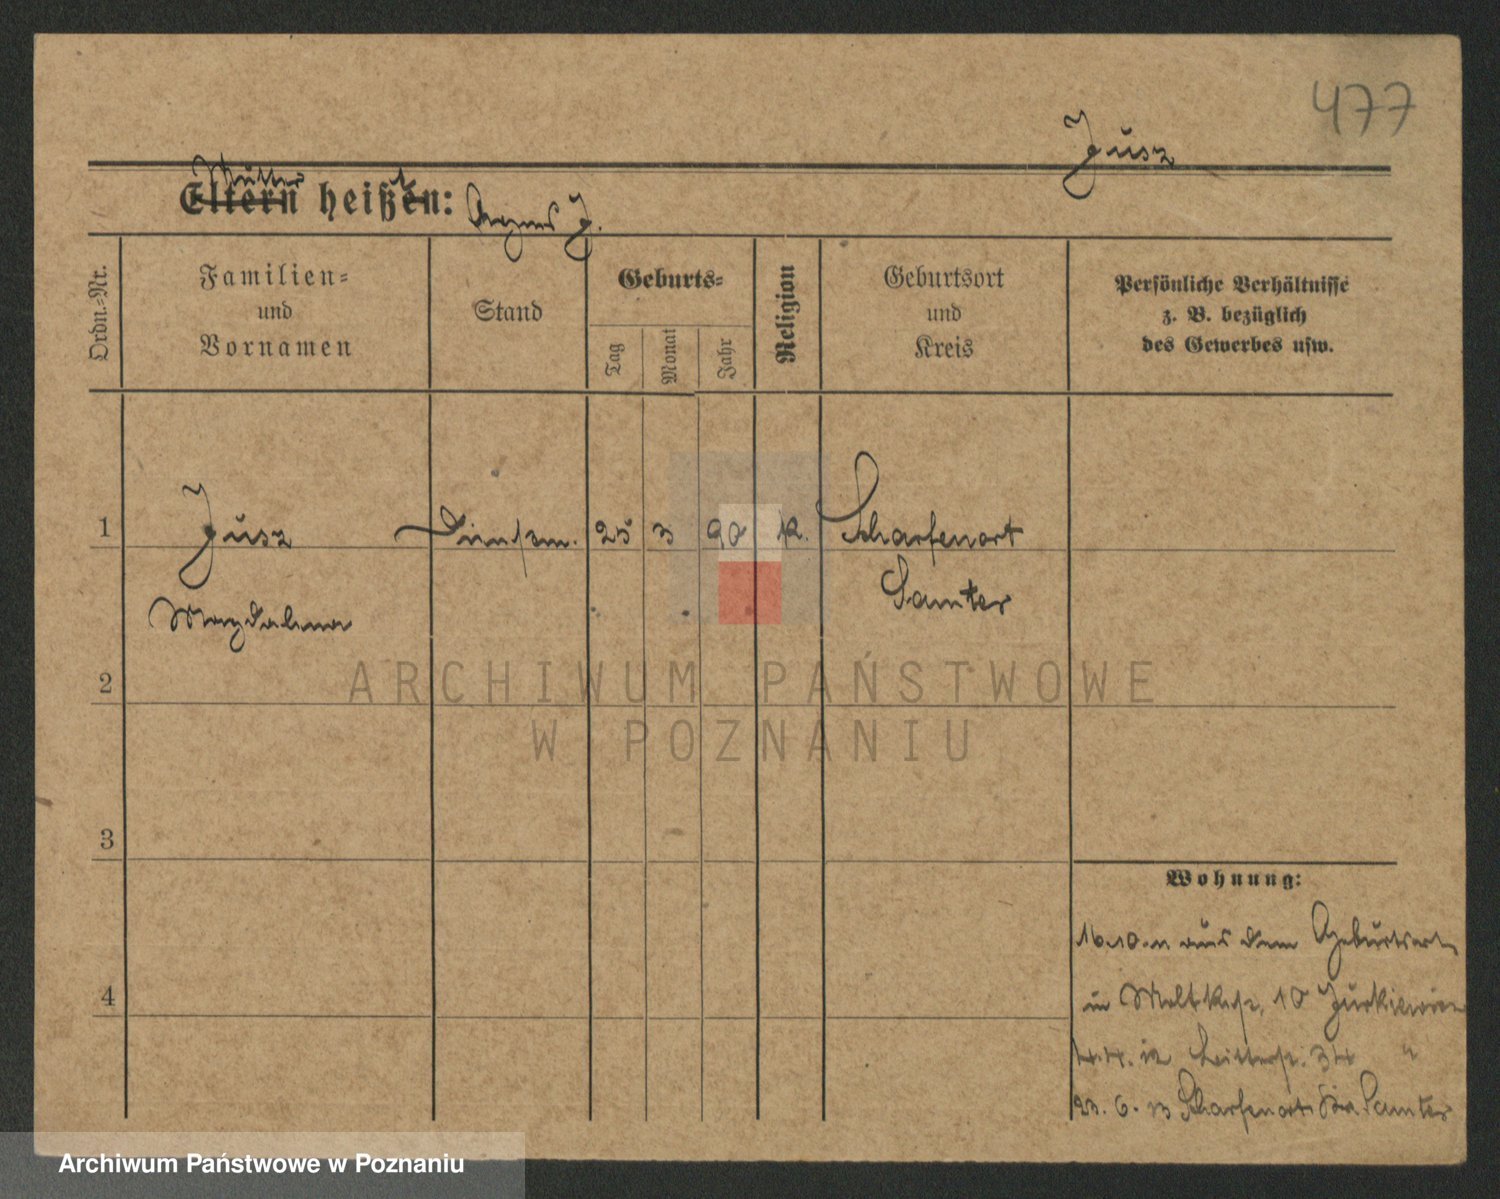 477
Jusz
Mutter
Eltern heißen: Agnes J.
Ordn.-Nr.
Familien=
und
Vornamen
Stand
Geburts=
Tag
Monat
Jahr
Religion
Geburtsort
und
Kreis
Persönliche Verhältnisse
z. B. bezüglich
des Gewerbes usw.
1 Jusz 25 3 90 k. Scharfenort
Samter
Magdalena
2
3
4
Wohnung:
16.10.11 aus dem Geburtsort
in Moltkestr. 10 Jurkiewicz
4.4.12 34 "
23.6.13 Scharfenort Samter
ARCHIWUM PAŃSTWOWE
W POZNANIU
Archiwum Państwowe w Poznaniu